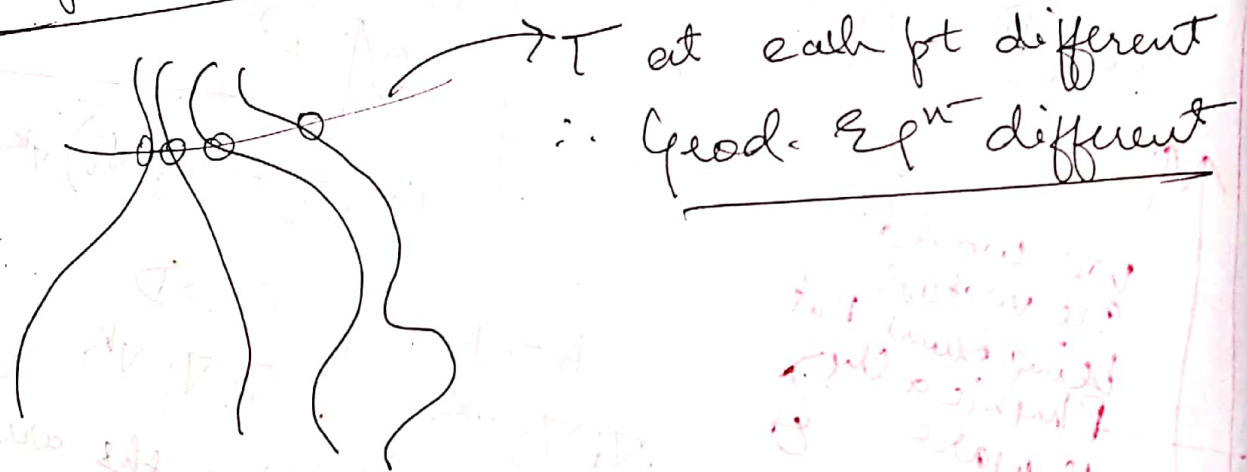 T at each pt different
∴ Geod. Eqⁿ different